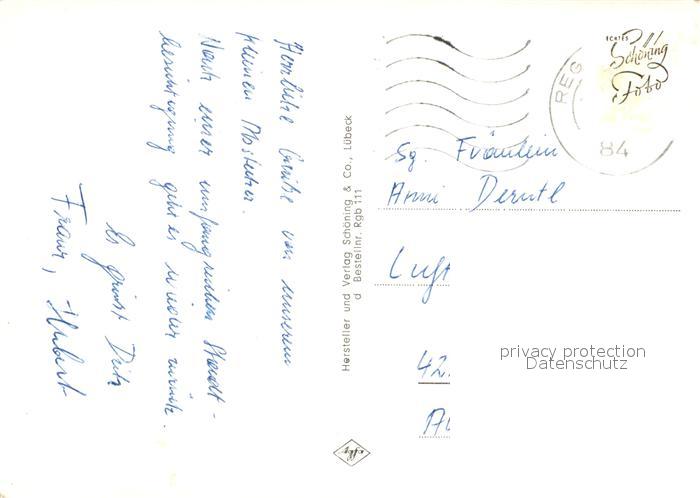 Herzliche Grüße von unserem
kleinen Abstecher.
Nach einer umfangreichen Stadt-
besichtigung geht es wieder zurück.
Es grüsst Dich
Franz, Hubert
Hersteller und Verlag Schöning & Co., Lübeck
d Bestellnr. Rgb 111
ECHTES
Schöning
Foto
REG
84
Sg. Fräulein
Anni Derntl
Luft
42.
privacy protection
Datenschutz